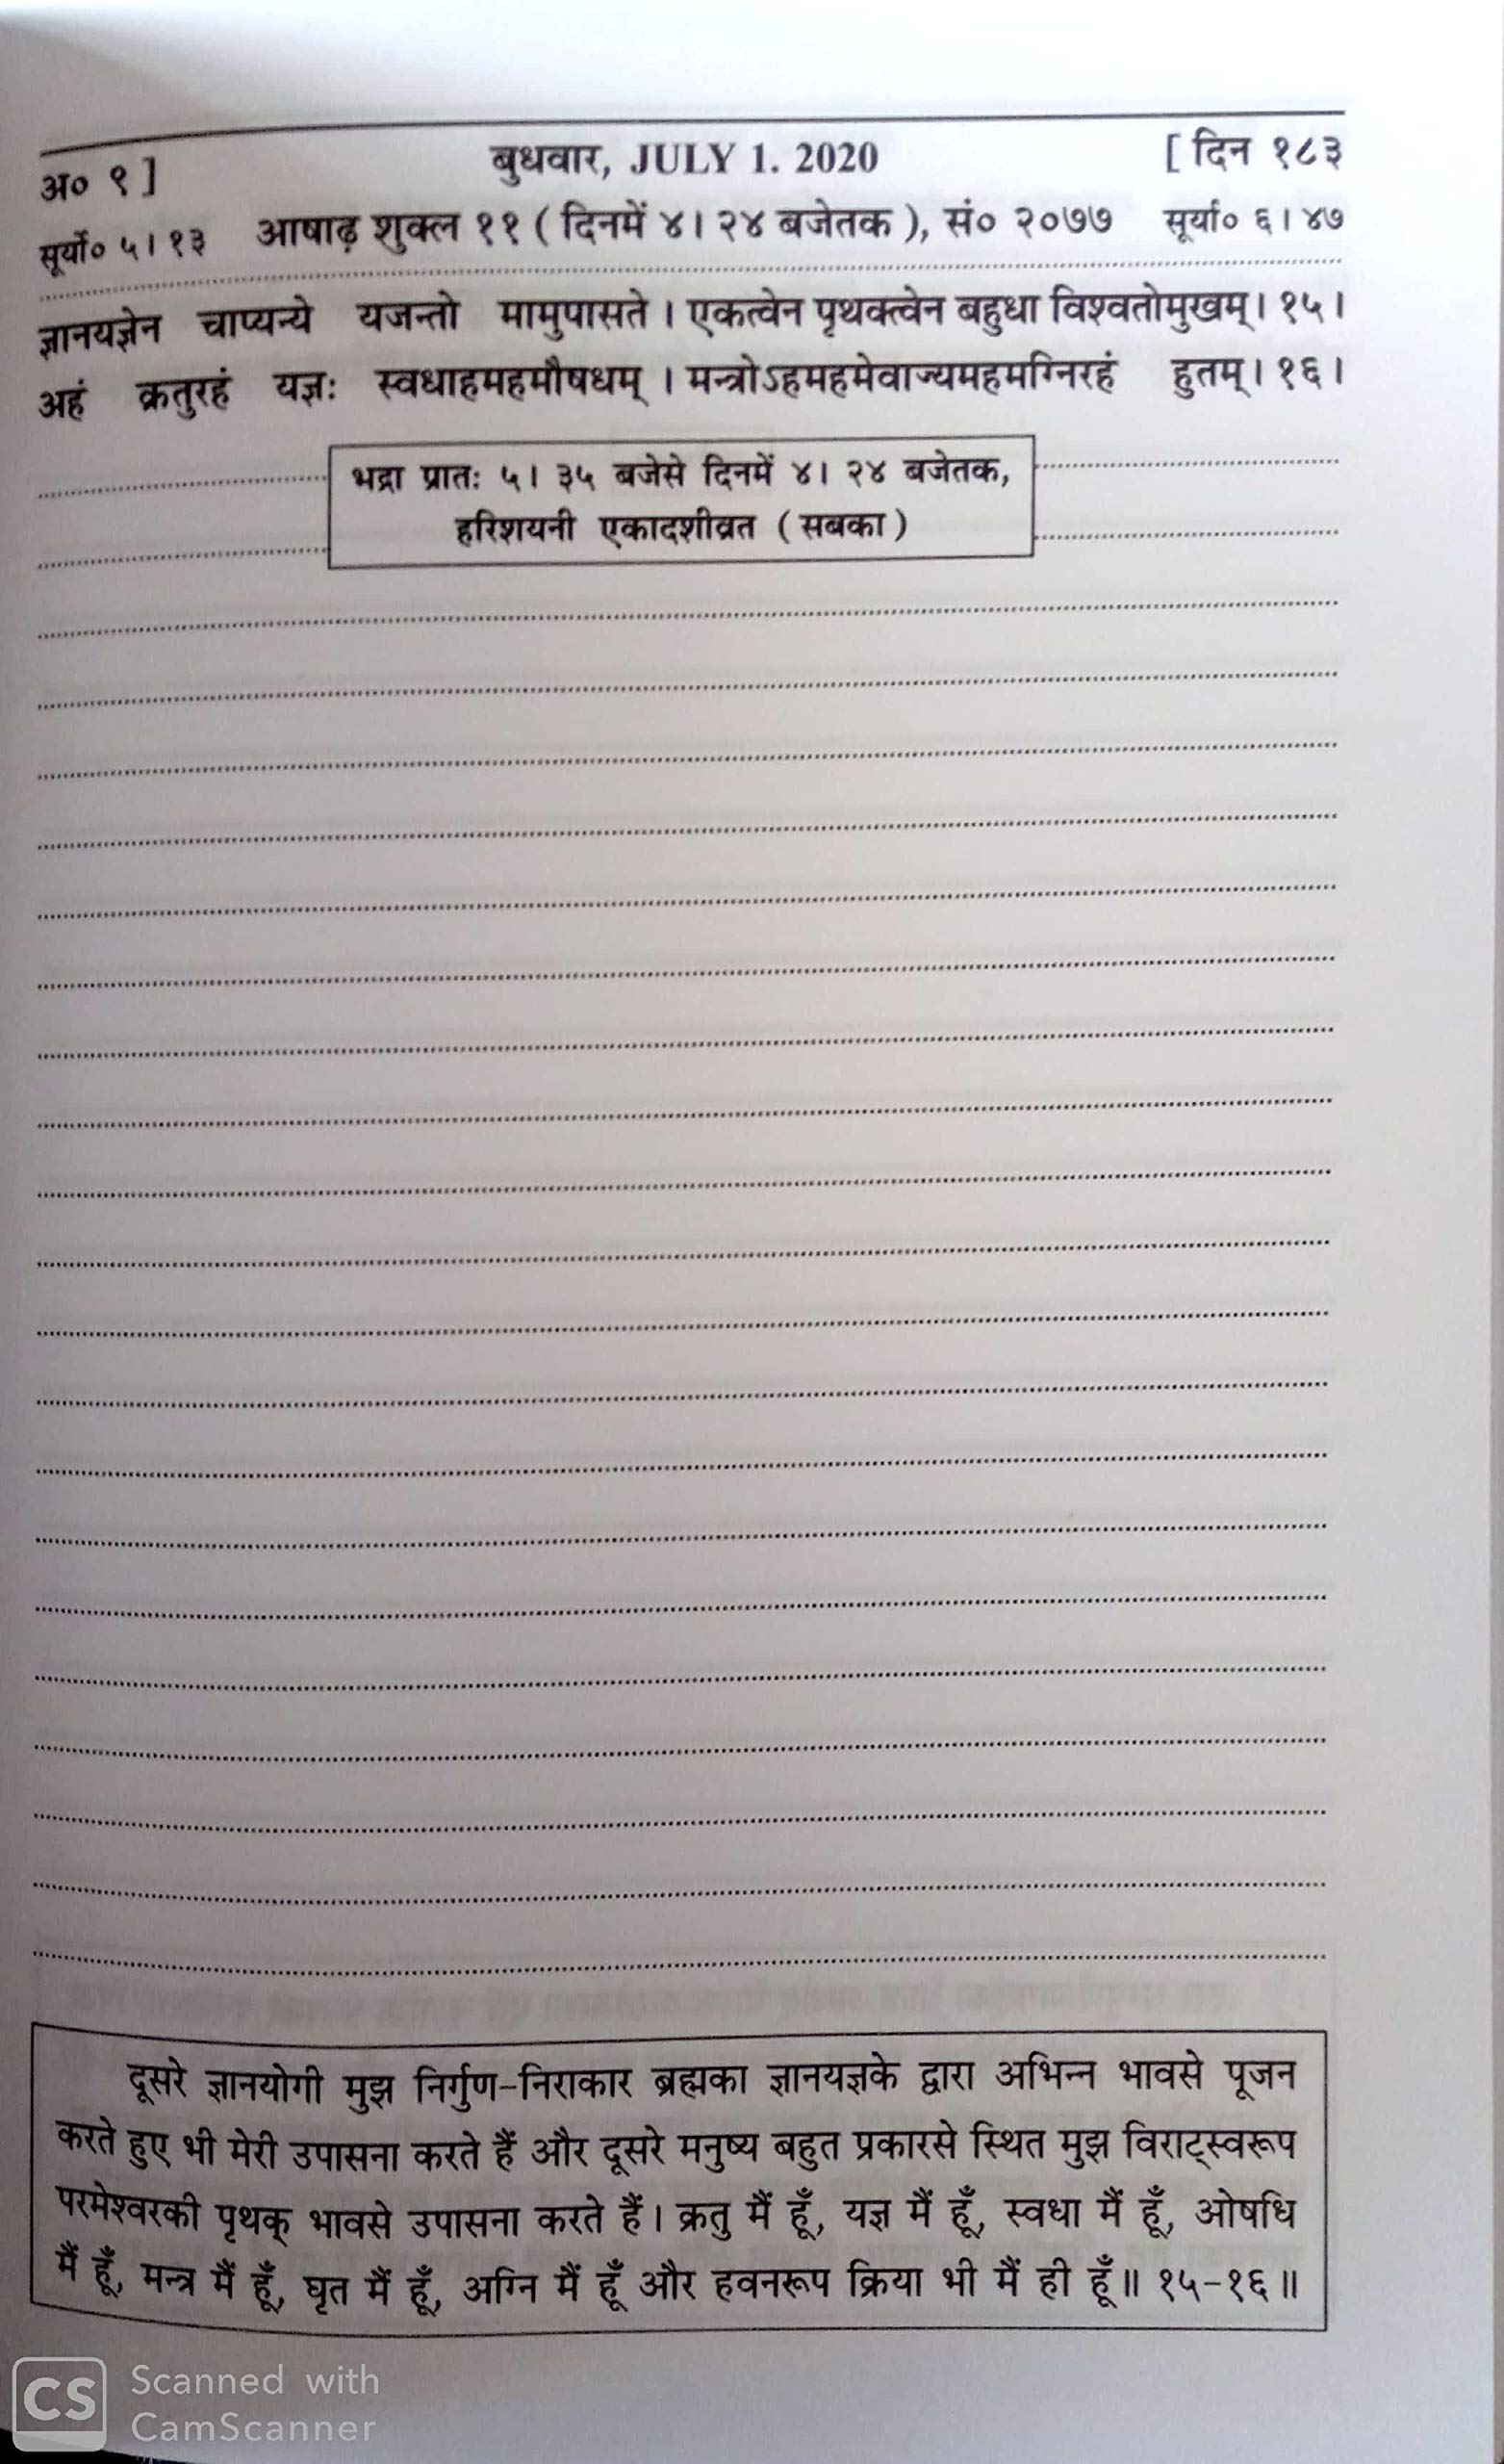 अ० ९ ]
बुधवार, JULY 1. 2020
[ दिन १८३
सूर्यो० ५। १३ आषाढ़ शुक्ल ११ ( दिनमें ४। २४ बजेतक ), सं० २०७७ सूर्या० ६। ४७
ज्ञानयज्ञेन चाप्यन्ये यजन्तो मामुपासते । एकत्वेन पृथक्त्वेन बहुधा विश्वतोमुखम्। १५।
अहं क्रतुरहं यज्ञः स्वधाहमहमौषधम् । मन्त्रोऽहमहमेवाज्यमहमग्निरहं हुतम्। १६।
भद्रा प्रातः ५। ३५ बजेसे दिनमें ४। २४ बजेतक,
हरिशयनी एकादशीव्रत ( सबका )
दूसरे ज्ञानयोगी मुझ निर्गुण-निराकार ब्रह्मका ज्ञानयज्ञके द्वारा अभिन्न भावसे पूजन
करते हुए भी मेरी उपासना करते हैं और दूसरे मनुष्य बहुत प्रकारसे स्थित मुझ विराट्स्वरूप
परमेश्वरकी पृथक् भावसे उपासना करते हैं। क्रतु मैं हूँ, यज्ञ मैं हूँ, स्वधा मैं हूँ, ओषधि
मैं हूँ, मन्त्र मैं हूँ, घृत मैं हूँ, अग्नि मैं हूँ और हवनरूप क्रिया भी मैं ही हूँ॥ १५-१६॥
CS Scanned with
CamScanner